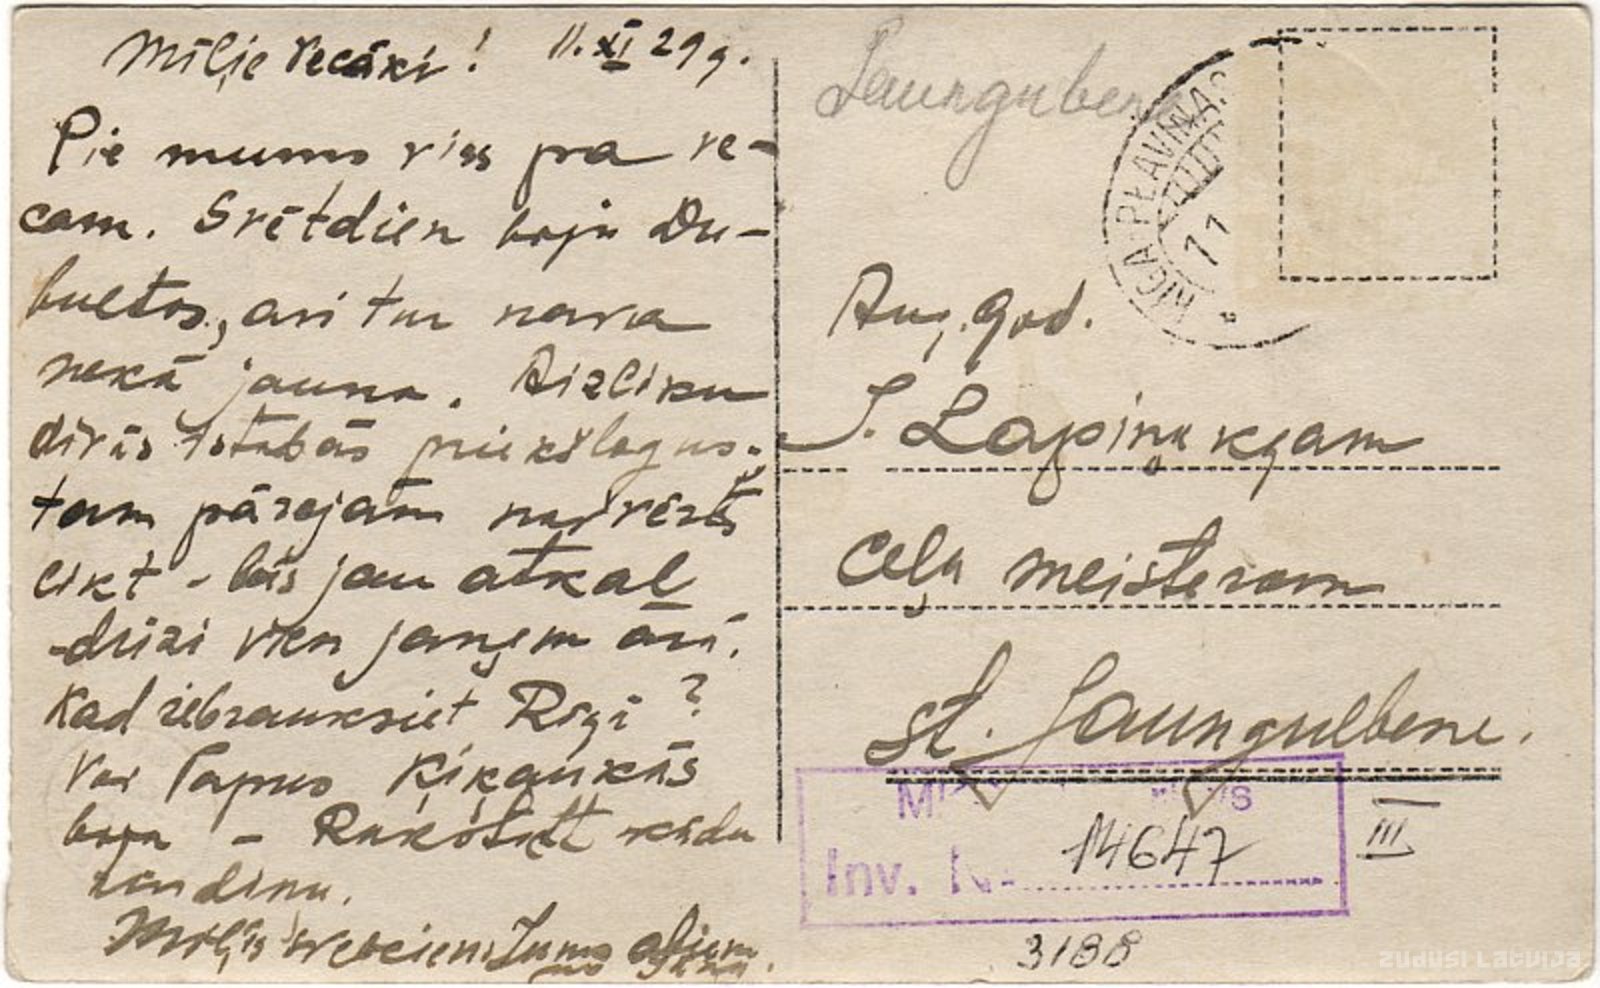 Mīļie vecāki! 11. XI 29 g.
Pie mums viss pa ve-
cam. Svētdien biju Du-
bultos, arī tur nava
nekā jauna. Aizliku
divās istabās priekšlogus,
tam pārējām
likt - būs jau atkal
drīzi vien jaņem ārā.
Kad iebrauksiet Rīgā?
Vai Papus Ķikaukās
bija - Rakstiet kādu
rindiņu.
Mīļš sveiciens Jums abiem
Jaungulbene
RĪGA-PĻAVIŅAS
11
Aug. god.
J. Lapiņa kgam
ceļa meisteram
st. Jaungulbene.
Inv. N
14647
III
3188
zudusi Latvija